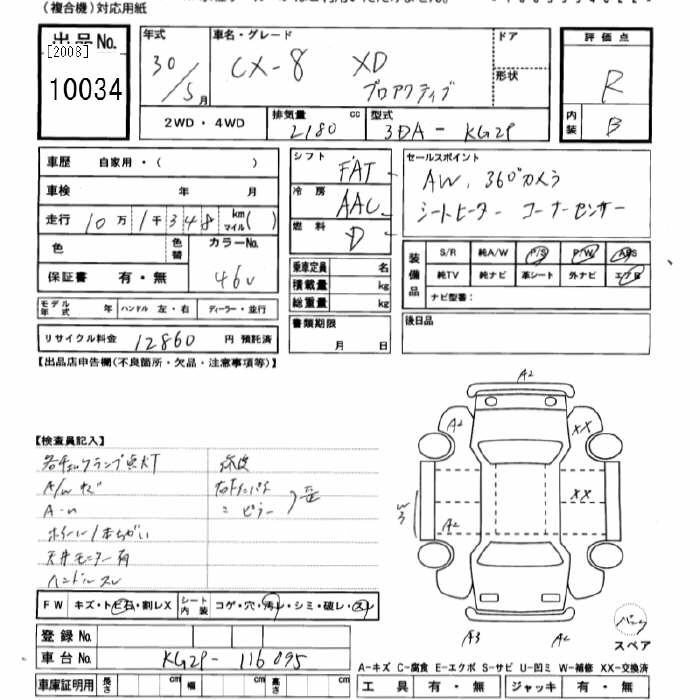 (複合機)対応用紙
出品No.
[2008]
10034
年式
30/5月
車名・グレード
CX-8 XD
プロアクティブ
ドア
形状
評価点
R
内装
B
2WD・4WD
排気量
2180 cc
型式
3DA-KG2P
車歴 自家用・( )
車検 年 月
走行 10万1千348 km マイル( )
色
色替
カラーNo.
46V
保証書 有・無
モデル年式 年 ハンドル 左・右 ディーラー・並行
リサイクル料金 12860 円 預託済
シフト
FAT
冷房
AAC
燃料
D
乗車定員 名
積載量 kg
総重量 kg
書類期限
月 日
セールスポイント
AW、360°カメラ
シートヒーター コーナーセンサー
装備品
S/R 純A/W P/S P/W ABS
純TV 純ナビ 革シート 外ナビ エアB
ナビ型番:
後日品
【出品店申告欄(不良箇所・欠品・注意事項等)】
【検査員記入】
右チェックランプ点灯
A/Wキズ
ホイール1本ちがい
天井モニター有
ハンドルスレ
ピラー
A2
A2
XX
XX
W3
A2
A3
A2
パンク
スペア
FW キズ・トビ石・割レX シート内装 コゲ・穴・汚レ・シミ・破レ・スレ
登録No.
車台No. KG2P-116095
車庫証明用 長さ cm 幅 cm 高さ cm
A-キズ C-腐食 E-エクボ S-サビ U-凹ミ W-補修 XX-交換済
工具 有・無 ジャッキ 有・無